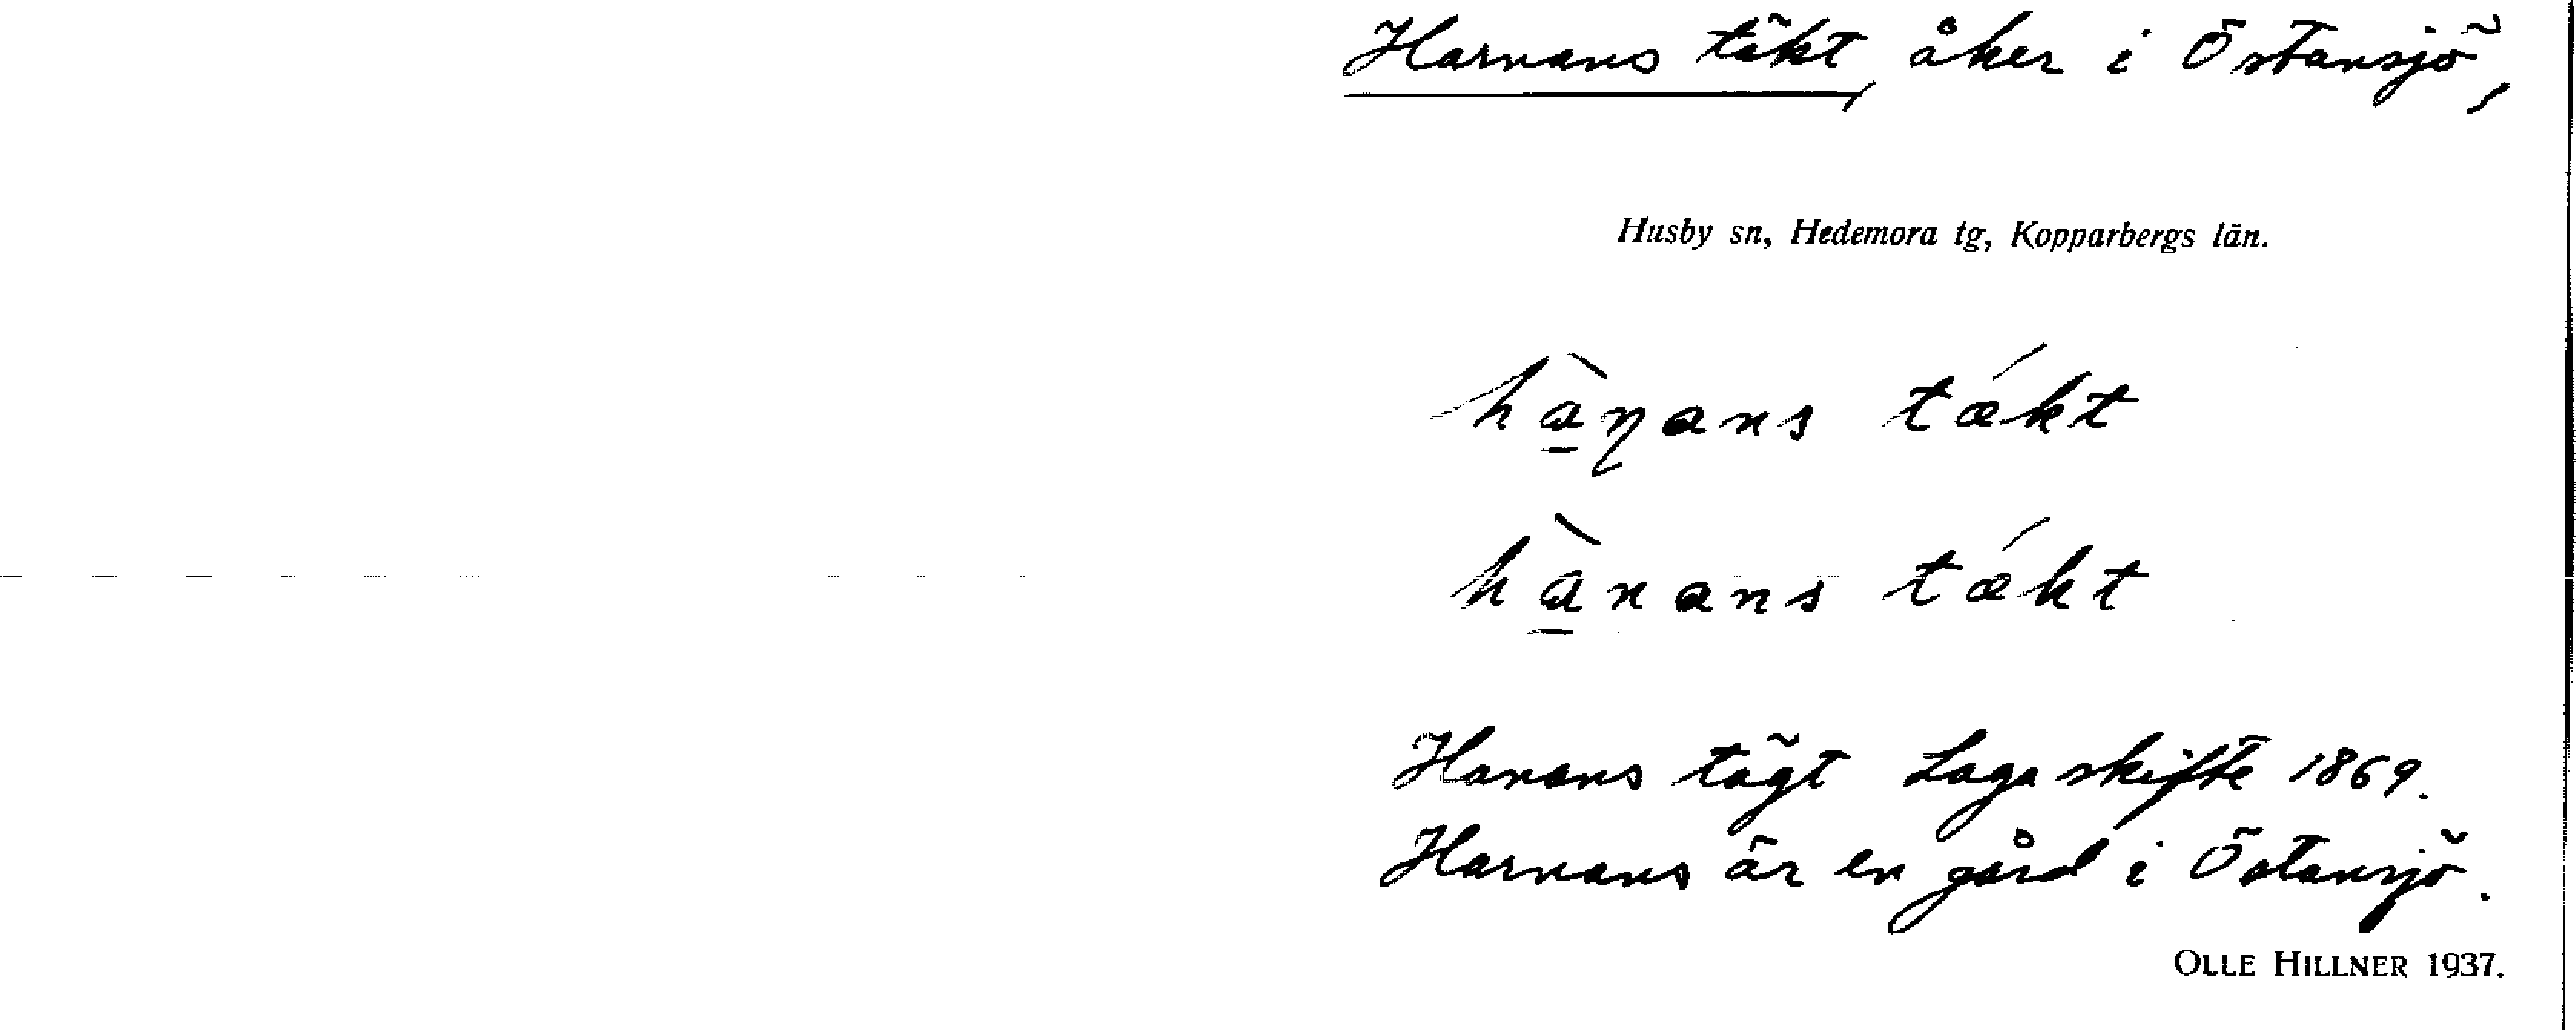 Harnans täkt, åker i Östansjö,
Husby sn, Hedemora tg, Kopparbergs län.
hà̱ɳans tǽkt
hà̱nans tǽkt
Hanans tägt Laga skifte 1869.
Harnans är en gård i Östansjö.
OLLE HILLNER 1937.